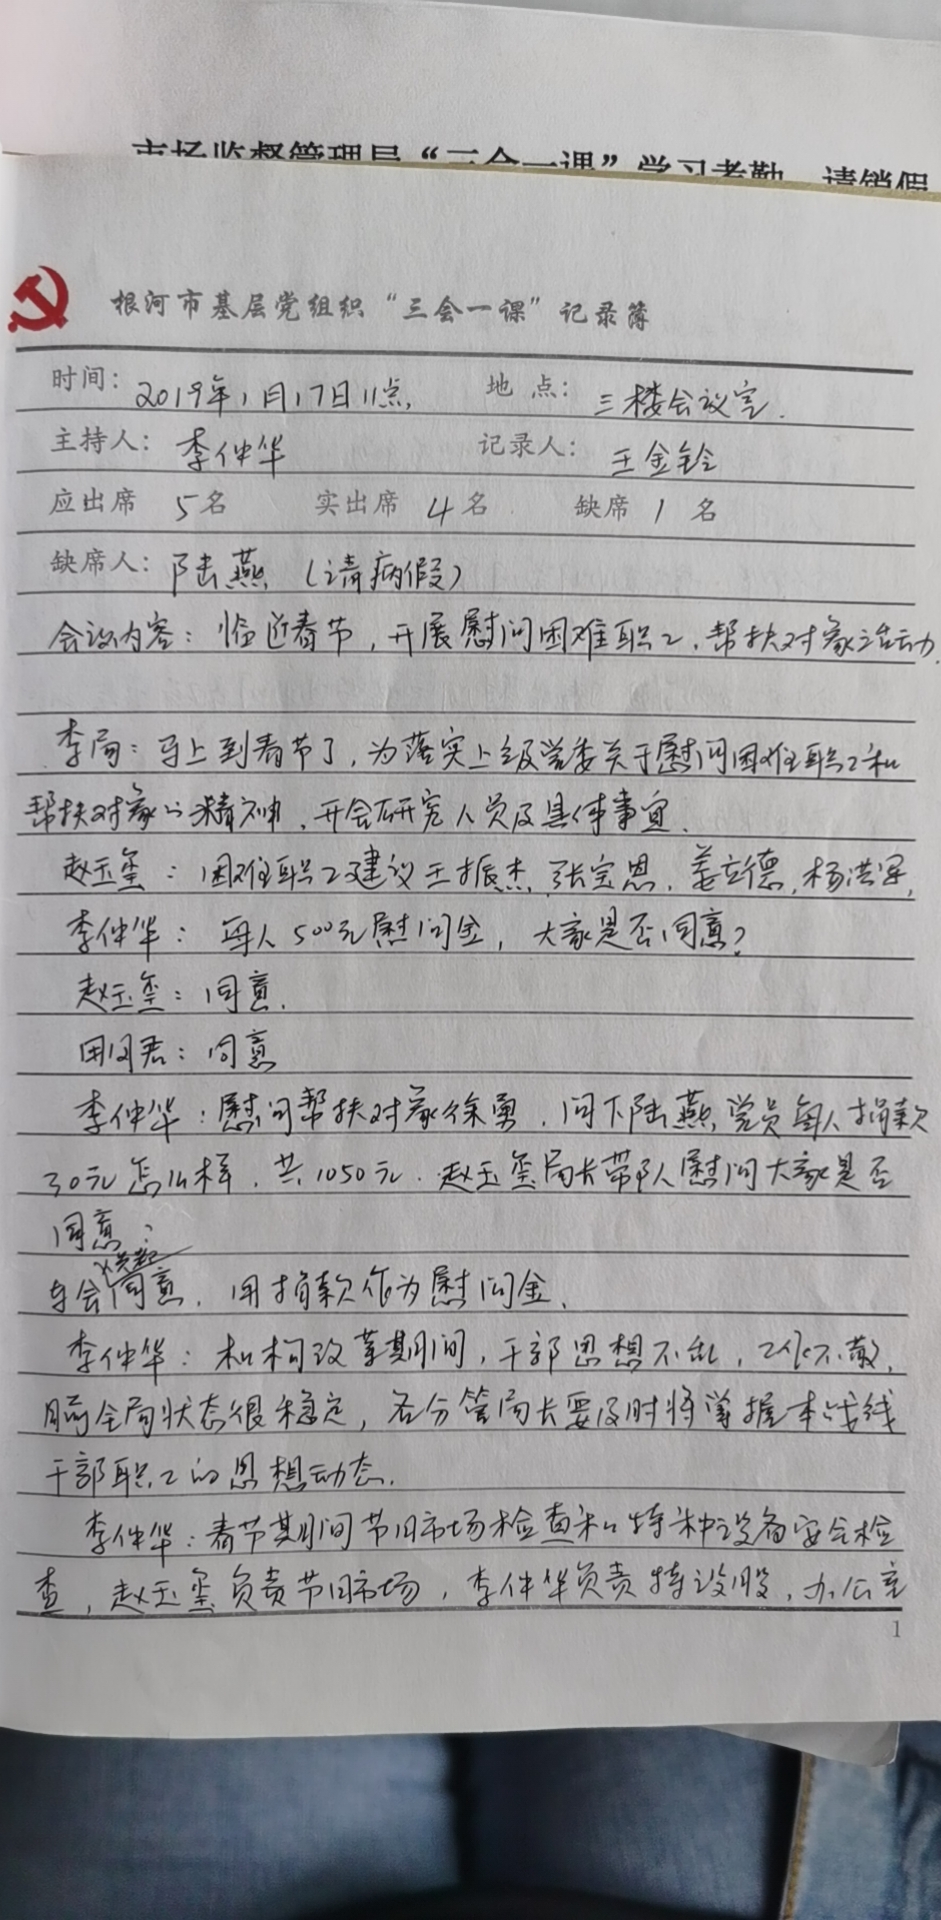 市场监督管理局“三会一课”学习考勤、请销假
根河市基层党组织“三会一课”记录簿
时间：2019年1月17日11点. 地点：三楼会议室.
主持人：李仲华 记录人：王金铃
应出席 5名 实出席 4名 缺席 1 名
缺席人：陆燕（请病假）
会议内容：临近春节，开展慰问困难职工、帮扶对象活动.
李局：马上到春节了，为落实上级党委关于慰问困难职工和
帮扶对象的精神，开会研究人员及具体事宜.
赵玉玺：困难职工建议王振杰、张宝恩、姜立德、杨洪
李仲华：每人500元慰问金，大家是否同意？
赵玉玺：同意.
田同君：同意
李仲华：慰问帮扶对象徐勇，问下陆燕，党员每人捐款
30元怎么样，共1050元. 赵玉玺局长带队慰问大家是否
同意？
与会同意，用捐款作为慰问金.
李仲华：机构改革期间，干部思想不乱，工作不散，
目前全局状态很稳定，各分管局长要及时将掌握本战线
干部职工的思想动态.
李仲华：春节期间节日市场检查和特种设备安全检
查，赵玉玺负责节日市场，李仲华负责特设股，办公室
1